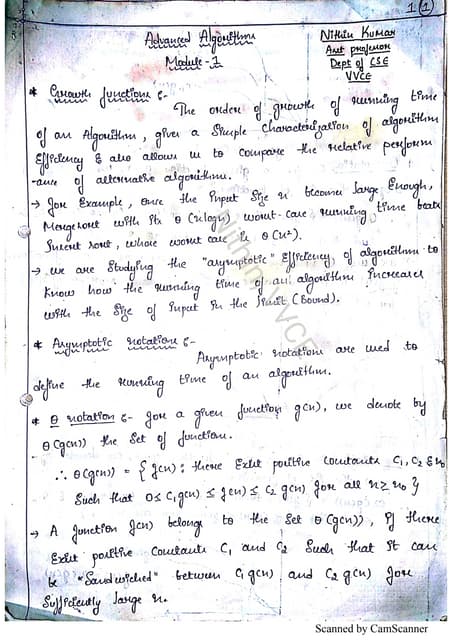 1(1)
Advanced Algorithm
Module-1
Nithin Kumar
Asst professor
Dept of CSE
VVCE
* Growth functions :-
The order of growth of running time
of an Algorithm, gives a Simple Characterization of algorithm
Efficiency & also allows us to Compare the relative perform
-ance of alternative algorithm.
→ for Example, once the input Size n become large Enough,
Mergesort with its θ(nlogn) worst-case running time beats
Insert sort, whose worst case is θ(n²).
→ we are Studying the "asymptotic" Efficiency of algorithm to
know how the running time of an algorithm increases
with the Size of input in the limit (Bound).
* Asymptotic notation :-
Asymptotic notations are used to
define the running time of an algorithm.
* θ notation :- for a given function g(n), we denote by
θ(g(n)) the Set of function.
∴ θ(g(n)) = { f(n) : there Exist positive constants C1, C2 & n0
Such that 0 ≤ C1g(n) ≤ f(n) ≤ C2 g(n) for all n ≥ n0 }
→ A function f(n) belongs to the Set θ(g(n)), if there
Exist positive Constants C1 and C2 Such that it can
be "Sandwiched" between C1g(n) and C2 g(n) for
Sufficiently large n.
Nithin VVCE
Scanned by CamScanner